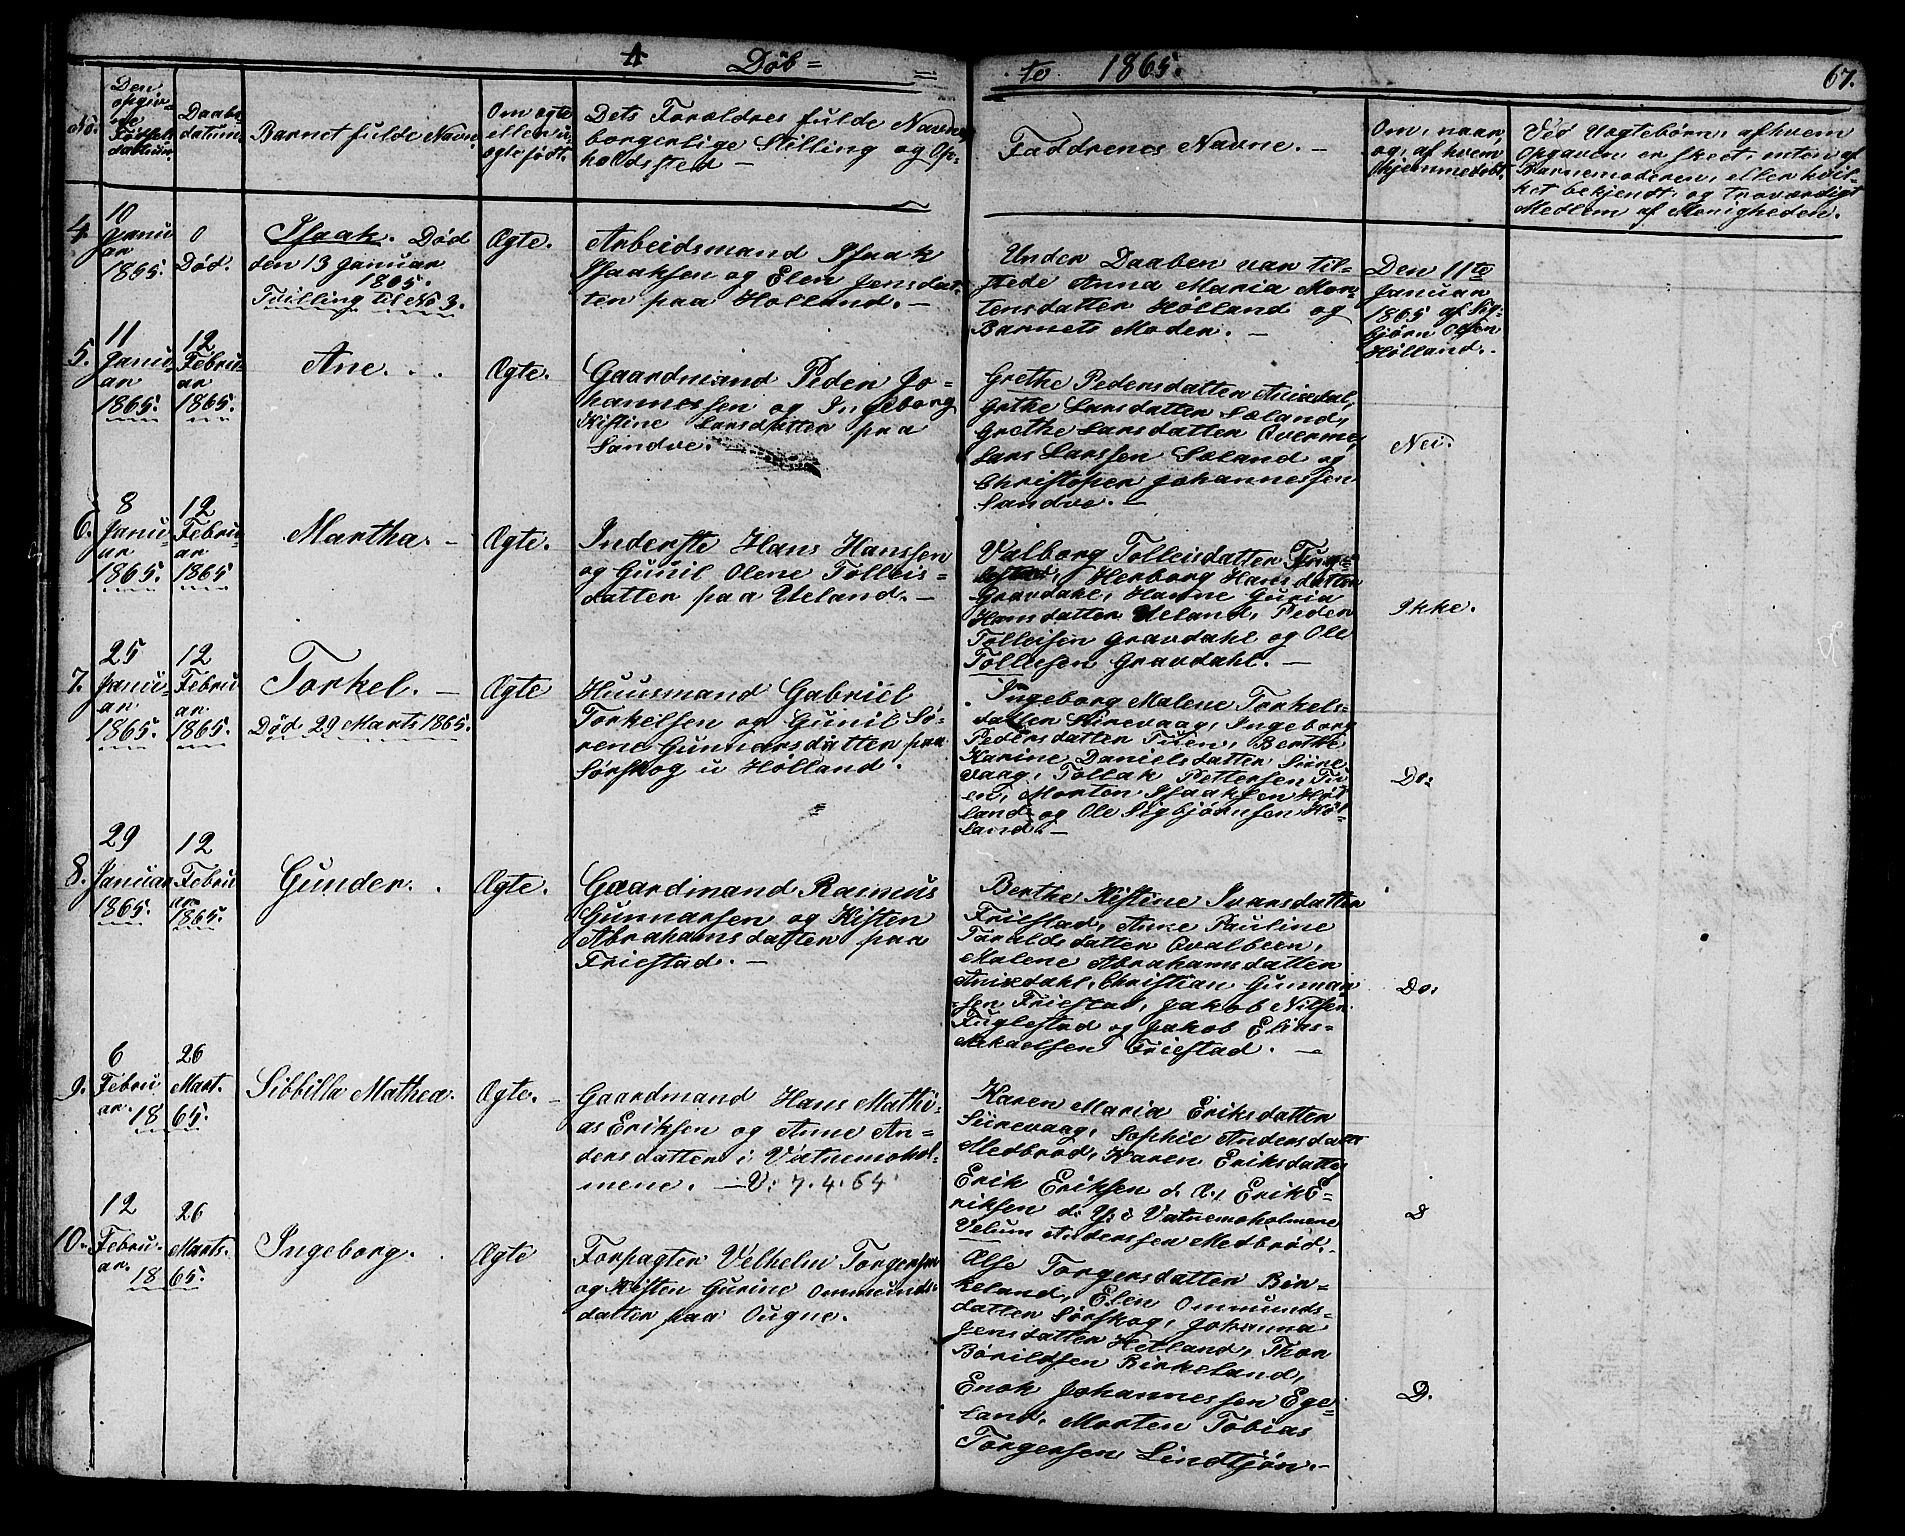 A Døb= te 1865. 67.
No.
Den
opgiv-
ne
Fødsels
datum.
Daabs
datum.
Barnet fulde Navn.
Om ægte
eller u-
ægte født.
Dets Forældres fulde Navne,
borgerlige Stilling og Op-
holdssted —
Faddrenes Navne. —
Om, naar,
og, af hvem
hjemmedøbt.
Ved Uægtebørn, af hvem
Opgaven er skeet, enten af
Barnemoderen, eller hvil-
ket bekjendt, og troværdigt
Medlem af Menigheden.
4.
10
Janu
ar
1865.
0
Død.
Isaak. Død
den 13 Januar
1865.
Tvilling til No 3.
Ægte.
Arbeidsmand Isaak
Isaaksen og Elen Jensdat-
ter paa Holland. —
Under Daaben var til-
stede Anna Maria Mor-
tensdatter Hølland og
Barnets Moder. —
Den 11te
Januar
1865 af Sig-
bjørn Olsen
Hølland.
5.
11
Janu-
ar
1865.
12
Febru-
ar
1865.
Ane.
Ægte.
Gaardmand Peder Jo-
hannessen og Ingeborg
Kistine Larsdatter paa
Sandve. —
Grethe Pedersdatter Anisdal,
Grthe Larsdatter Sæland,
Grethe Larsdatter Øverme,
Lars Larssen Sæland og
Christofer Johannessen
Sandve. —
Nei.
6.
8
Janu-
ar
1865.
12
Febru-
ar
1865
Martha. —
Ægte.
Inderste Hans Hanssen
og Gunil Olene Tolleis-
datter paa Ueland. —
Valborg Tolleisdatter
Herborg Hansdatter
Gravdahl, Hanne Guria
Hansdatter Ueland, Peder
Tolleisen Gravdahl og Ole
Tolleisen Gravdahl. —
Ikke.
7.
25
Janu-
ar
1865.
12
Febru
ar
1865.
Torkel. —
Død 29 Marts 1865.
Ægte
Huusmand Gabriel
Torkelsen og Gunil Sø-
rene Gunnarsdatter paa
Sørskog u Hølland.
Ingeborg Malene Torkels-
datter Sirevaag, Ingeborg
Pedersdatter Tuen, Berthe
Karine Danielsdatter Sire
vaag, Tollak Pettersen Tu
en, Morten Isaaksen Høl
land og Ole Sigbjørnsen Høl-
land. —
Do:
8.
29
Januar
1865.
12
Febru
ar
1865.
Gunder.
Ægte.
Gaardmand Rasmus
Gunnarsen og Kisten
Abrahamsdatter paa
Friestad. —
Berthe Kistine Ivarsdatter
Friestad, Anne Pauline
Taraldsdatter Qvalbeen,
Malene Abrahamsdatter
Anisdahl, Christian Gunnar
sen Friestad, Jakob Nilsen
Fuglestad og Jakob Elias-
Mekaelsen Friestad. —
Do.
9.
6
Febru
ar.
26
Mart.
1865.
Sibbilla Mathea.
Ægte. —
Gaardmand Hans Mathi-
as Eriksen og Anne An-
dersdatter i Vatnemohol-
mene. — V: 7. 4. 64.
Karen Maria Eriksdatter
Siirevaag, Sophie Andersdatter
Medbrød, Karen Eriksdatter
Erik Eriksen d. Æ., Erik E-
riksen d: Y: i Vatnemoholmene
Velum Anderssen Medbrød.
D
10.
12
Febru-
ar.
26
Marts.
1865.
Ingeborg.
Ægte
Forpagter Velhelm Torgersen
og Kisten Gurine Ommunds-
datter paa Ougne.
Else Torgersdatter Bir-
keland, Elen Ommunds-
datter Sørskog, Johanna
Jensdatter Hetland, Thor
Børildsen Birkeland,
Enok Johannessen Ege-
land, Morten Tobias
Torgersen Lindtjøn. —
D.